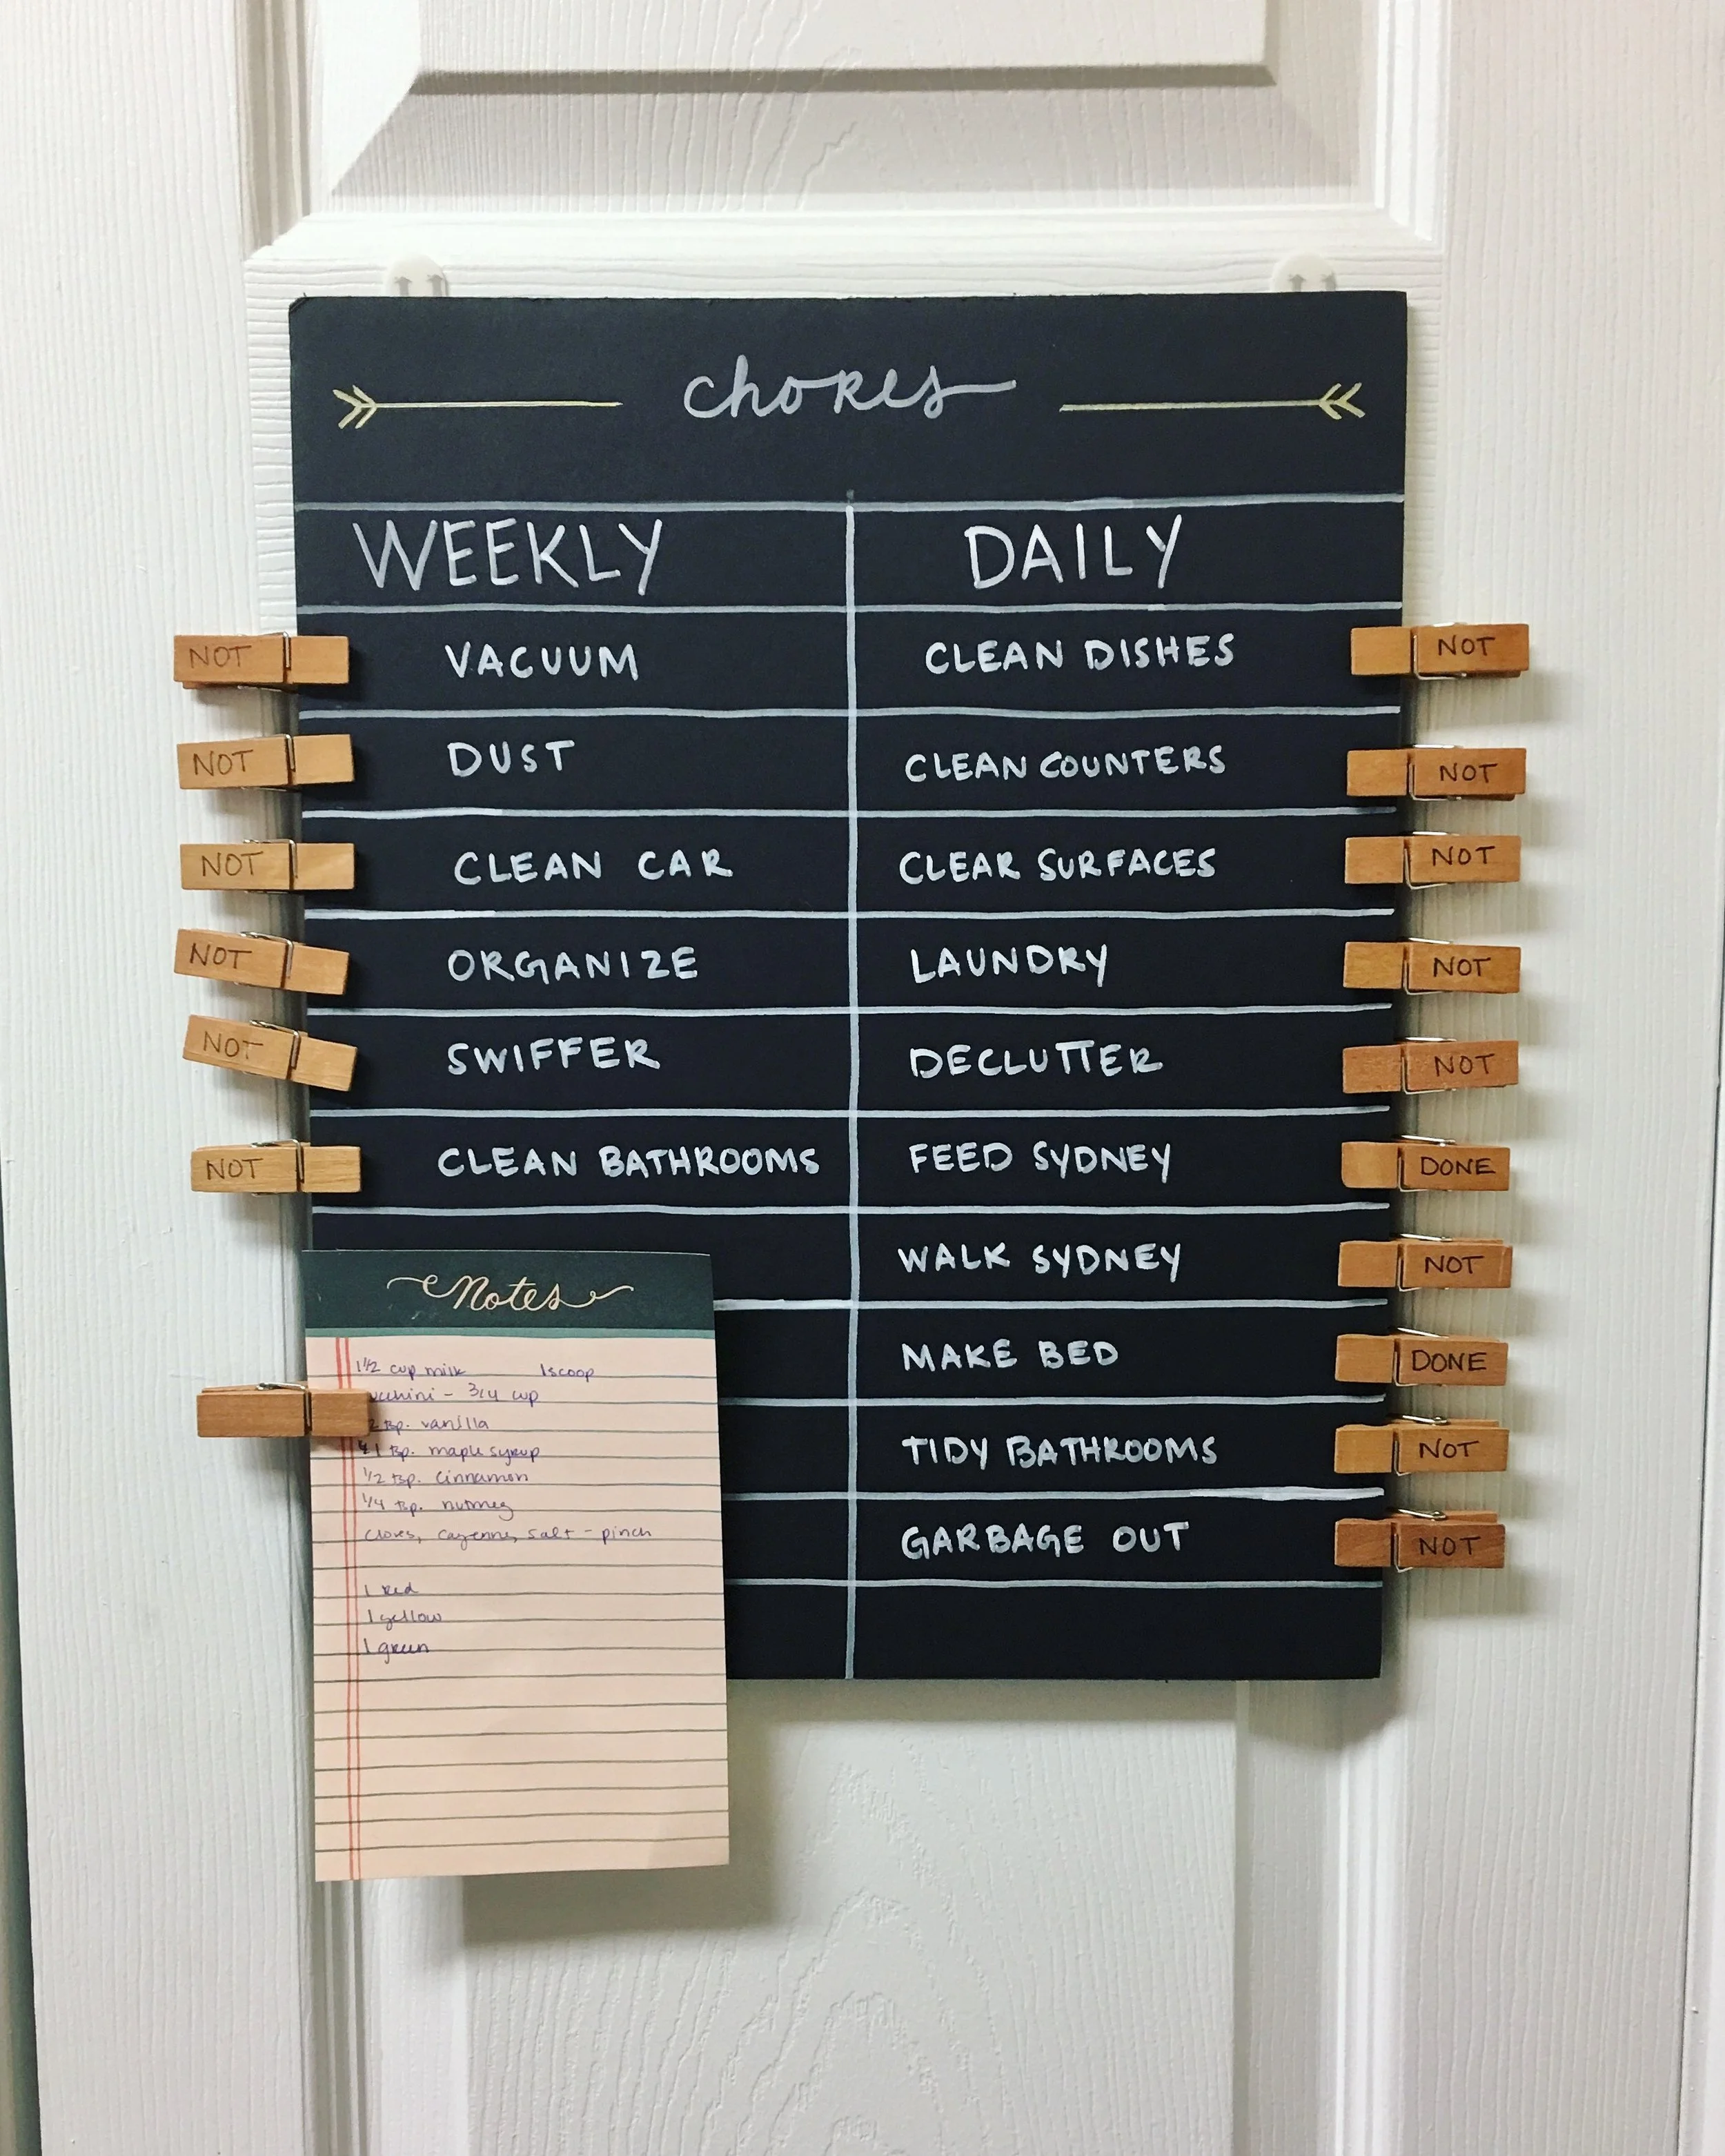 chores
WEEKLY DAILY
NOT VACUUM CLEAN DISHES NOT
NOT DUST CLEAN COUNTERS NOT
NOT CLEAN CAR CLEAR SURFACES NOT
NOT ORGANIZE LAUNDRY NOT
NOT SWIFFER DECLUTTER NOT
NOT CLEAN BATHROOMS FEED SYDNEY DONE
WALK SYDNEY NOT
MAKE BED DONE
TIDY BATHROOMS NOT
GARBAGE OUT NOT
Notes
1 1/2 cup milk 1 scoop
- 3/4 cup
tsp. vanilla
1 tsp. maple syrup
1/2 tsp. cinnamon
1/4 tsp. nutmeg
cloves, cayenne, salt - pinch
1 red
1 yellow
1 green